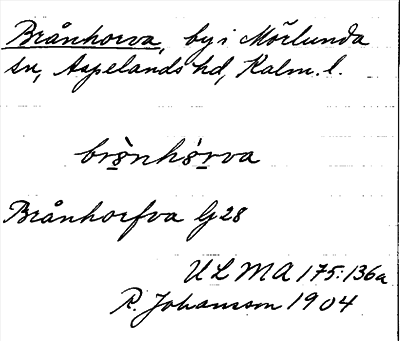 Brånhorva, by i Mörlunda
sn, Aspelands hd, Kalm. l.
brò̤nhó̤rva
Brånhorfva G 28
ULMA 175:136a
R. Johansson 1904